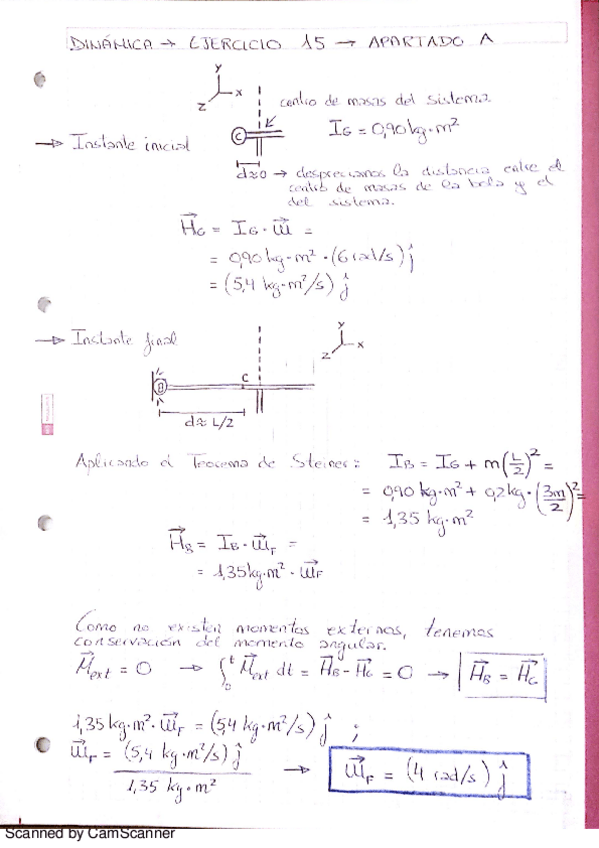 DINÁMICA → EJERCICIO 15 → APARTADO A
y
x
z
centro de masas del sistema.
C
I_G = 0,90 kg·m²
→ Instante inicial
d≈0 → despreciamos la distancia entre el
centro de masas de la bola y el
del sistema.
H⃗_G = I_G · ω⃗ =
= 0,90 kg·m² · (6 rad/s) ĵ
= (5,4 kg·m²/s) ĵ
→ Instante final
y
x
z
B
C
d≈ L/2
Aplicando el Teorema de Steiner: I_B = I_G + m(L/2)² =
= 0,90 kg·m² + 0,2 kg · (3m/2)² =
= 1,35 kg·m²
H⃗_B = I_B · ω⃗_F =
= 1,35 kg·m² · ω⃗_F
Como no existen momentos externos, tenemos
conservación del momento angular.
M⃗_ext = 0 → ∫₀ᵗ M⃗_ext dt = H⃗_B - H⃗_G = 0 → H⃗_B = H⃗_G
1,35 kg·m² · ω⃗_F = (5,4 kg·m²/s) ĵ ;
ω⃗_F = (5,4 kg·m²/s) ĵ / 1,35 kg·m² → ω⃗_F = (4 rad/s) ĵ
Scanned by CamScanner